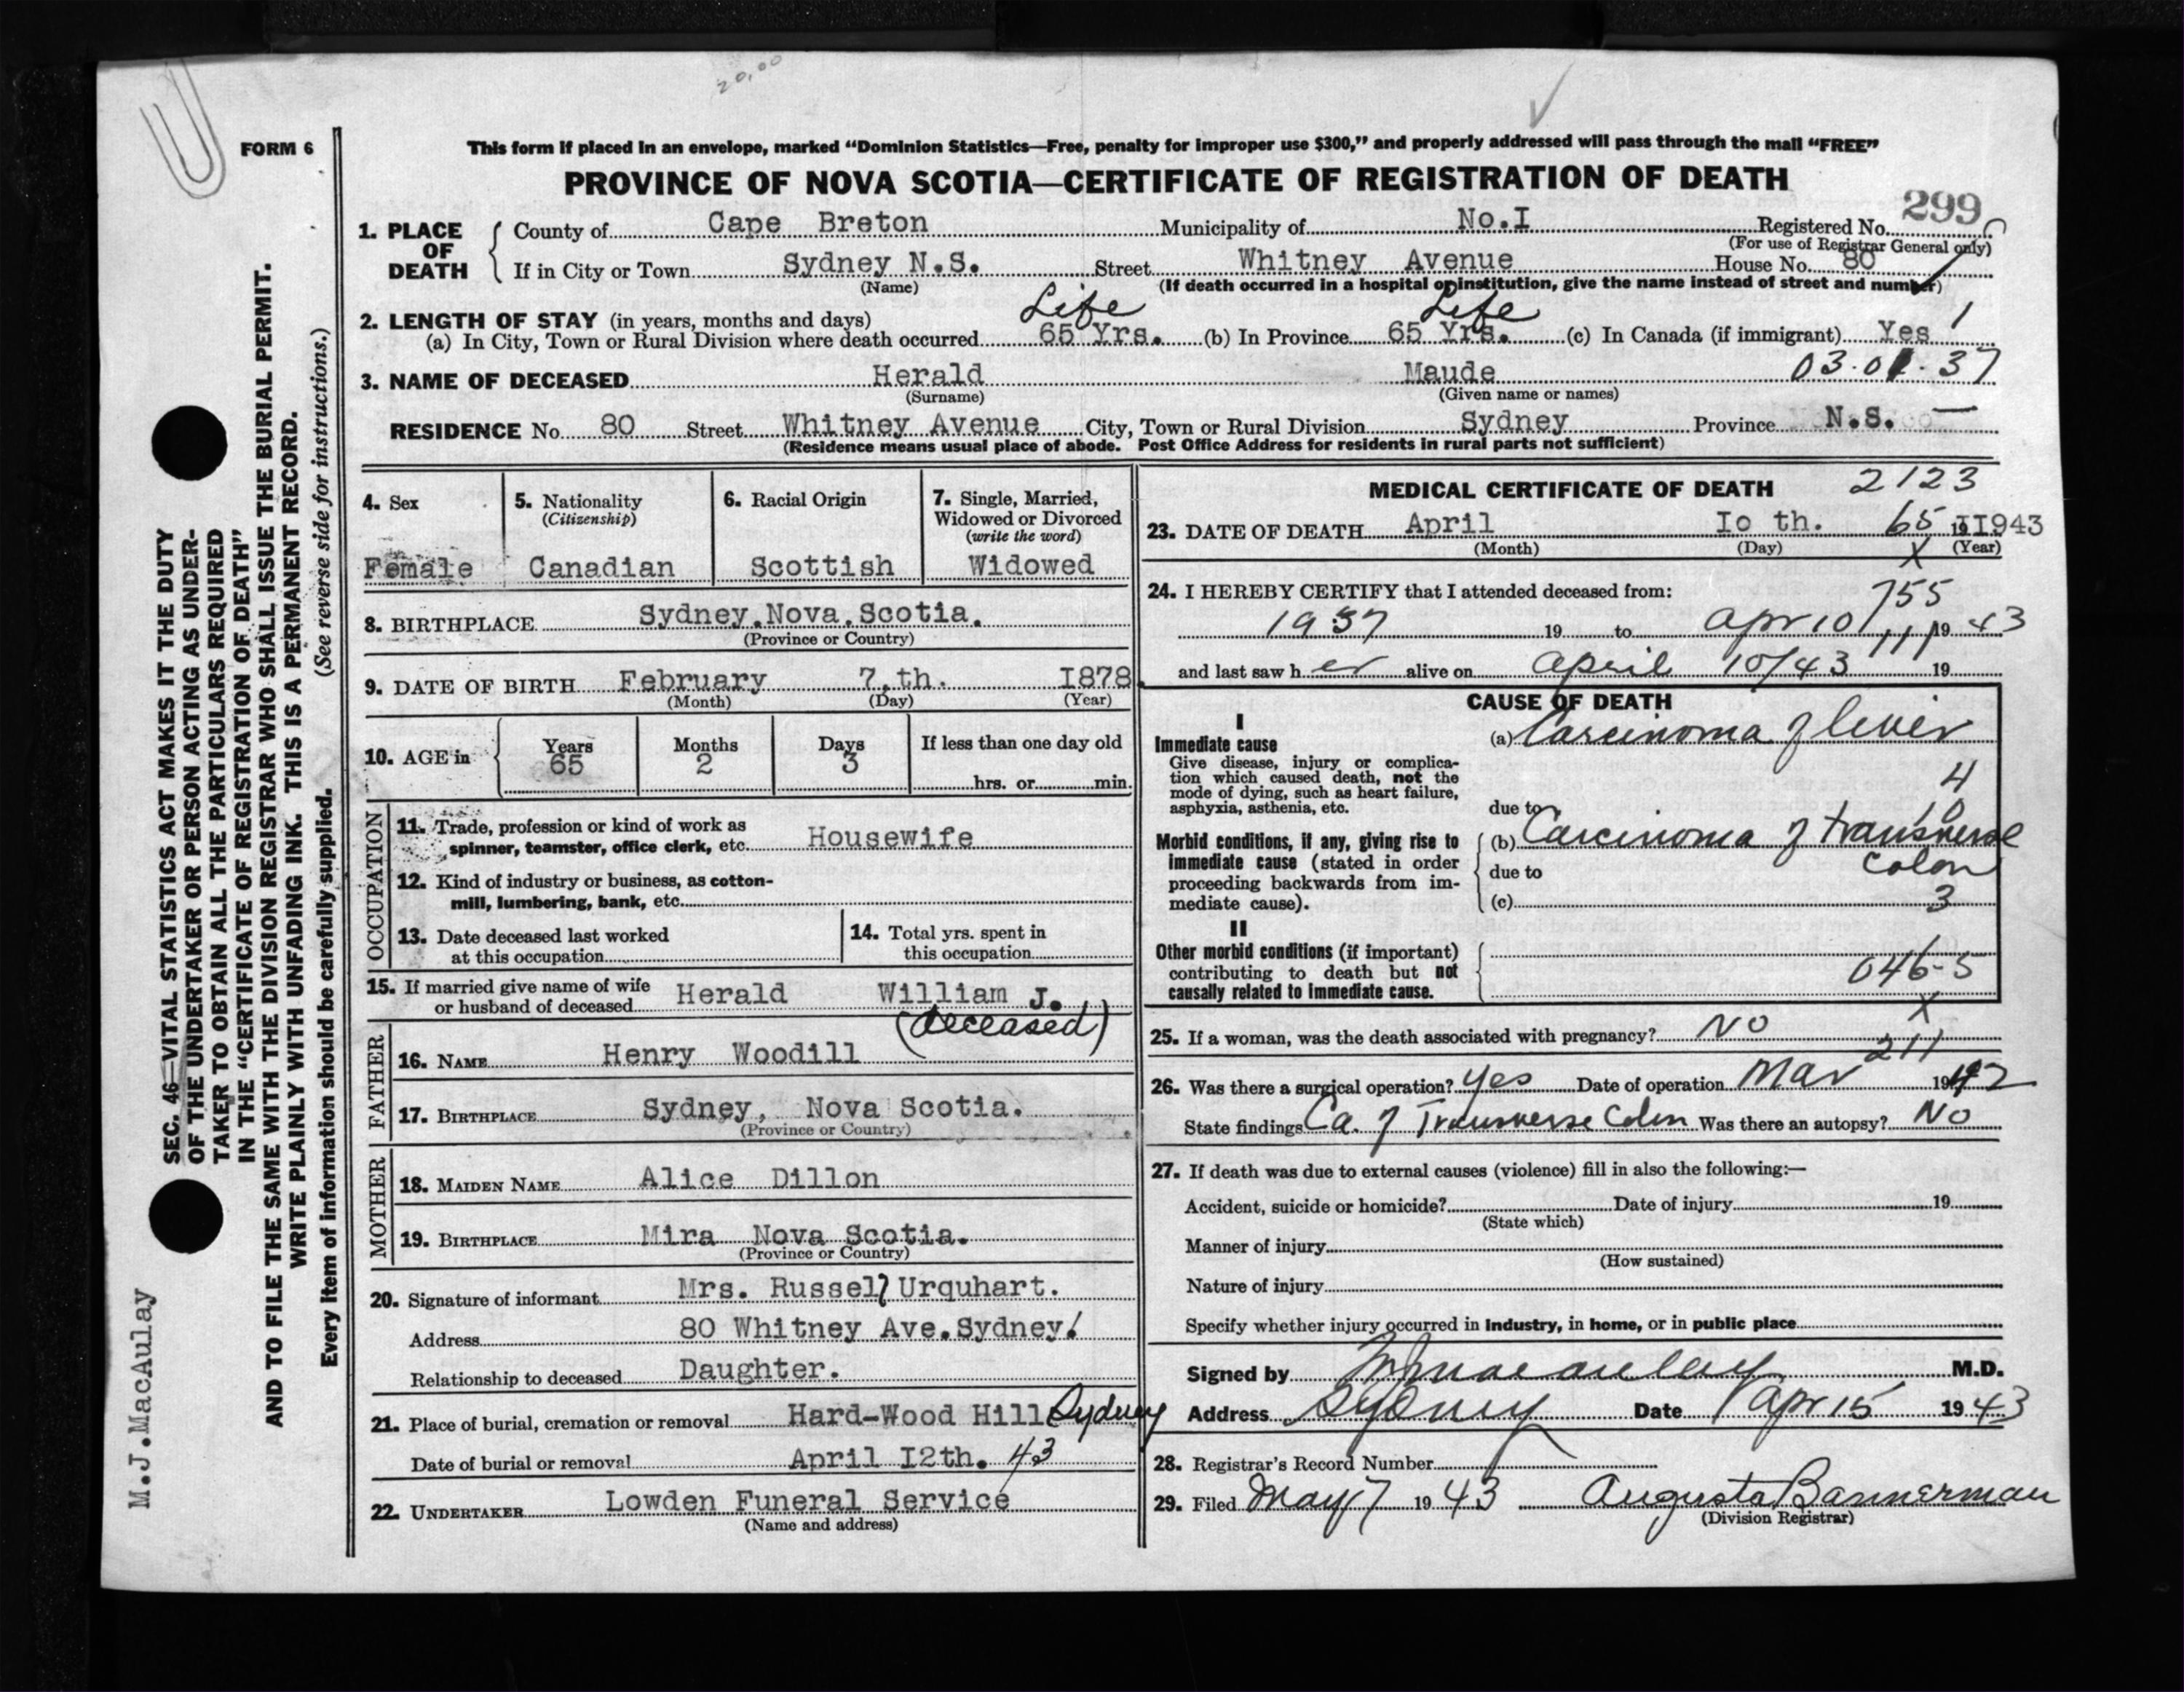 20.00
FORM 6
This form if placed in an envelope, marked “Dominion Statistics—Free, penalty for improper use $300,” and properly addressed will pass through the mail “FREE”
PROVINCE OF NOVA SCOTIA—CERTIFICATE OF REGISTRATION OF DEATH
299
1. PLACE OF DEATH
County of Cape Breton Municipality of No.I Registered No.
(For use of Registrar General only)
If in City or Town Sydney N.S. Street Whitney Avenue House No. 80
(Name) (If death occurred in a hospital or institution, give the name instead of street and number)
Life Life
2. LENGTH OF STAY (in years, months and days)
(a) In City, Town or Rural Division where death occurred 65 Yrs. (b) In Province 65 Yrs. (c) In Canada (if immigrant) Yes 1
3. NAME OF DECEASED Herald Maude 03.01.37
(Surname) (Given name or names)
RESIDENCE No. 80 Street Whitney Avenue City, Town or Rural Division Sydney Province N.S.
(Residence means usual place of abode. Post Office Address for residents in rural parts not sufficient)
4. Sex
Female
5. Nationality
(Citizenship)
Canadian
6. Racial Origin
Scottish
7. Single, Married,
Widowed or Divorced
(write the word)
Widowed
8. BIRTHPLACE Sydney.Nova.Scotia.
(Province or Country)
9. DATE OF BIRTH February 7.th. I878.
(Month) (Day) (Year)
10. AGE in
Years Months Days If less than one day old
65 2 3
hrs. or min.
OCCUPATION
11. Trade, profession or kind of work as
spinner, teamster, office clerk, etc. Housewife
12. Kind of industry or business, as cotton-
mill, lumbering, bank, etc.
13. Date deceased last worked
at this occupation
14. Total yrs. spent in
this occupation
15. If married give name of wife
or husband of deceased Herald William J.
(deceased)
FATHER
16. NAME Henry Woodill
17. BIRTHPLACE Sydney, Nova Scotia.
(Province or Country)
MOTHER
18. MAIDEN NAME Alice Dillon
19. BIRTHPLACE Mira Nova Scotia.
(Province or Country)
20. Signature of informant Mrs. Russell Urquhart.
Address 80 Whitney Ave.Sydney.
Relationship to deceased Daughter.
21. Place of burial, cremation or removal Hard-Wood Hill Sydney
Date of burial or removal April I2th. 43
22. UNDERTAKER Lowden Funeral Service
(Name and address)
MEDICAL CERTIFICATE OF DEATH 2123
23. DATE OF DEATH April Io th. 65 19 I943
(Month) (Day) X (Year)
24. I HEREBY CERTIFY that I attended deceased from:
755
1937 19 to apr 10 19 43
111
and last saw h er alive on april 10/43 19
CAUSE OF DEATH
I
Immediate cause
Give disease, injury or complica-
tion which caused death, not the
mode of dying, such as heart failure,
asphyxia, asthenia, etc.
(a) Carcinoma of liver
4
10
due to
Morbid conditions, if any, giving rise to
immediate cause (stated in order
proceeding backwards from im-
mediate cause).
(b) Carcinoma of transverse
colon
due to
(c) 3
II
Other morbid conditions (if important)
contributing to death but not
causally related to immediate cause.
046-5
X
25. If a woman, was the death associated with pregnancy? No
211
26. Was there a surgical operation? Yes Date of operation Mar 1942
State findings Ca. of Transverse Colon Was there an autopsy? No
27. If death was due to external causes (violence) fill in also the following:—
Accident, suicide or homicide? Date of injury 19
(State which)
Manner of injury
(How sustained)
Nature of injury
Specify whether injury occurred in industry, in home, or in public place
Signed by M J Macaulay M.D.
Address Sydney Date Apr 15 19 43
28. Registrar's Record Number
29. Filed May 7 19 43 Augusta Bannerman
(Division Registrar)
SEC. 46—VITAL STATISTICS ACT MAKES IT THE DUTY
OF THE UNDERTAKER OR PERSON ACTING AS UNDER-
TAKER TO OBTAIN ALL THE PARTICULARS REQUIRED
IN THE “CERTIFICATE OF REGISTRATION OF DEATH”
AND TO FILE THE SAME WITH THE DIVISION REGISTRAR WHO SHALL ISSUE THE BURIAL PERMIT.
WRITE PLAINLY WITH UNFADING INK. THIS IS A PERMANENT RECORD.
Every item of information should be carefully supplied. (See reverse side for instructions.)
M.J.MacAulay